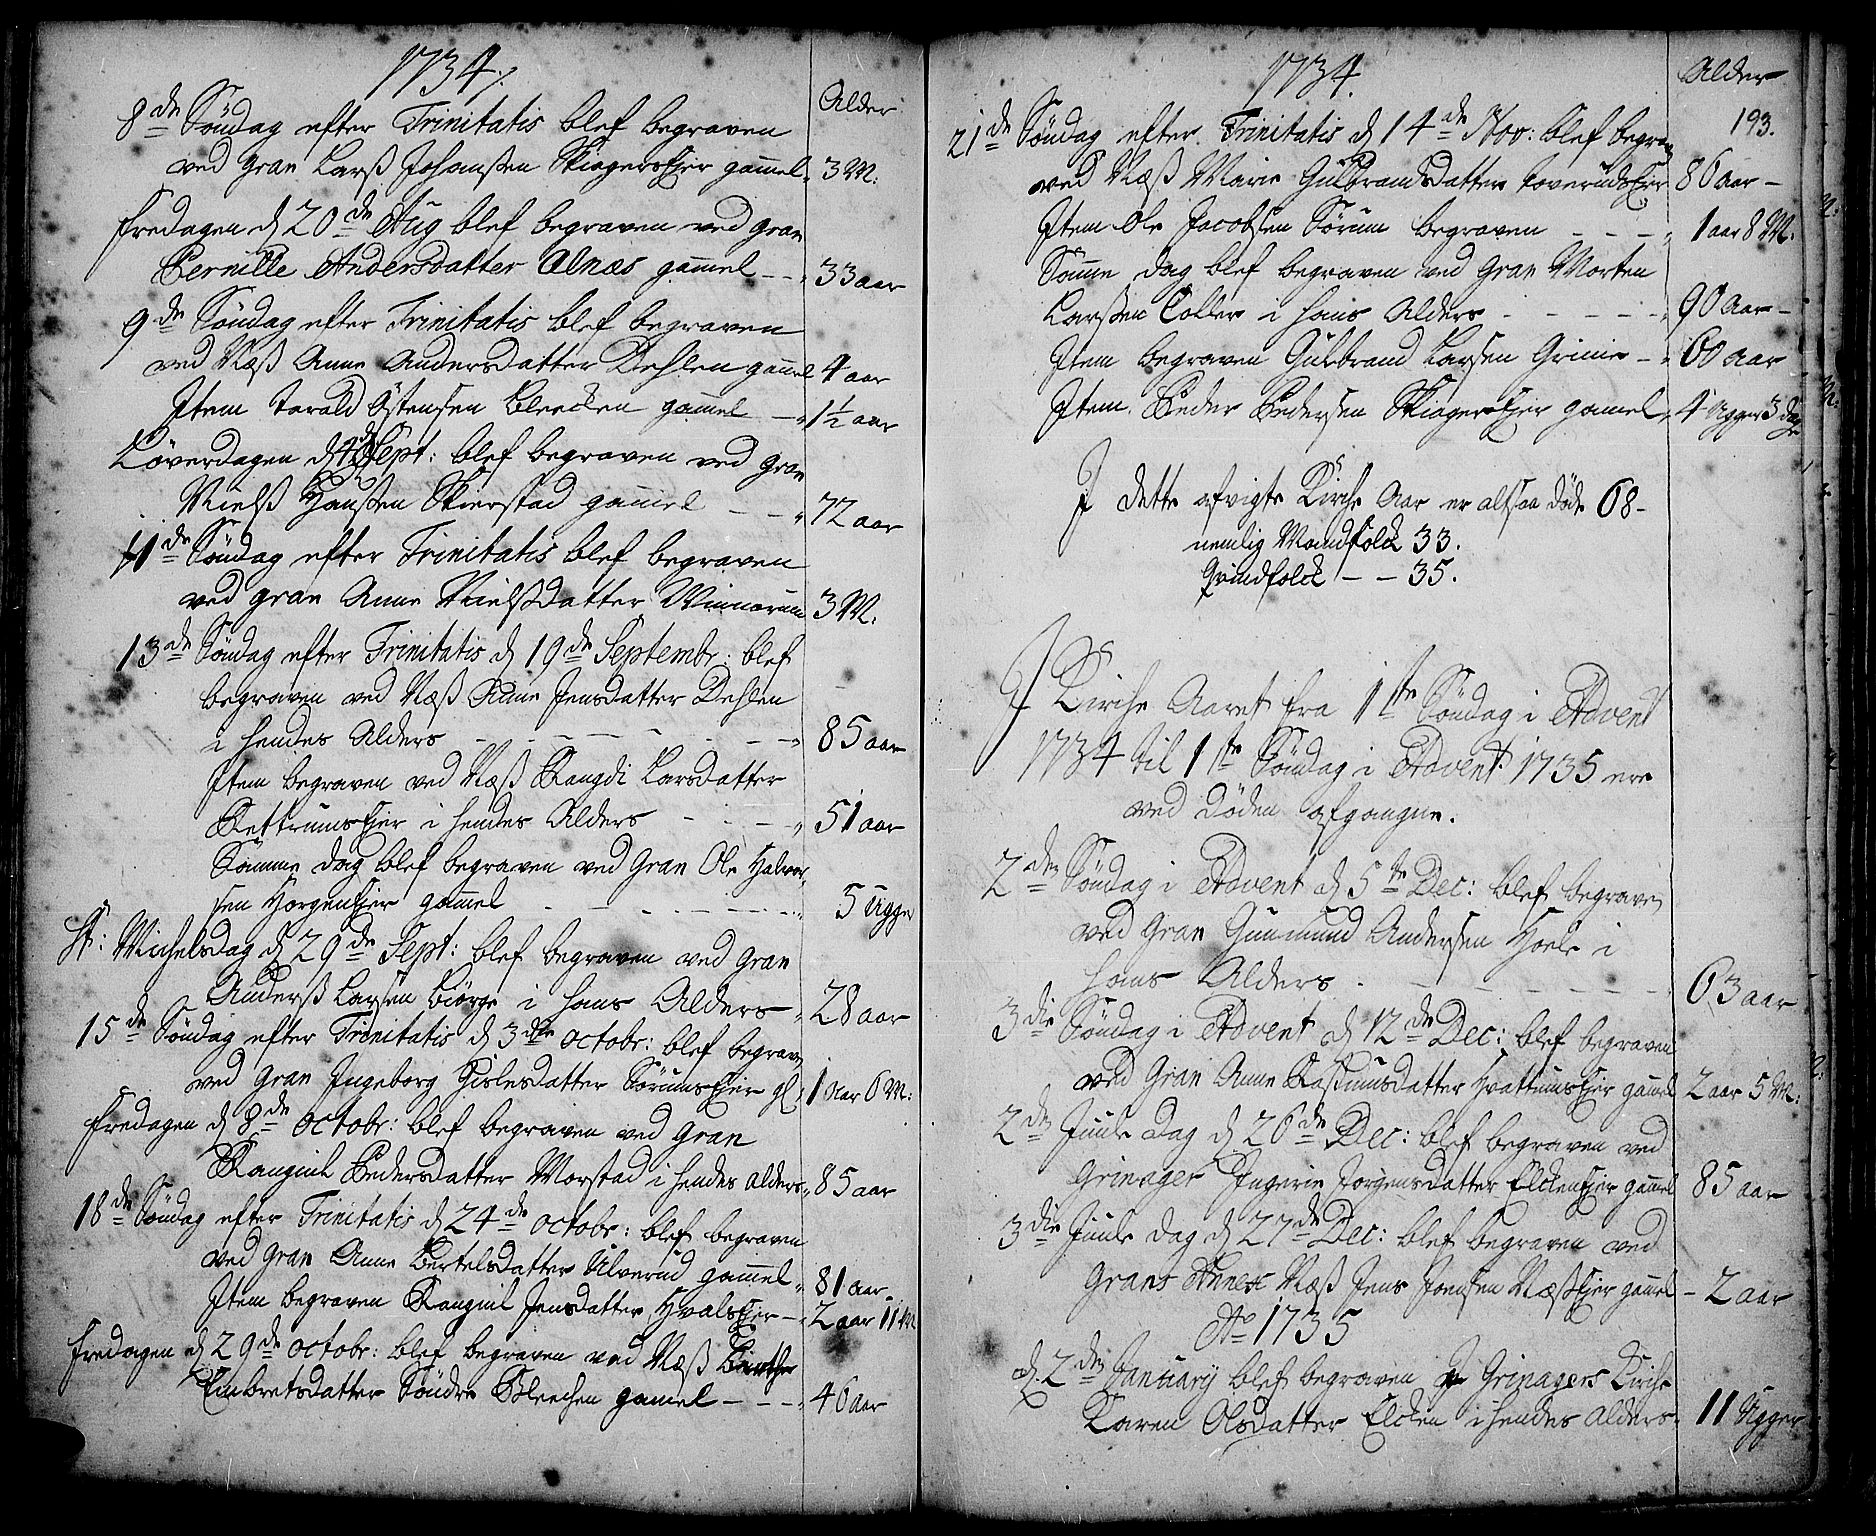 1734.
Alder
8de Søndag efter Trinitatis blef begraven
ved Gran Larß Johanßen Skiagersejer gammel 3 M:
Fredagen d 20de Aug blef begraven ved Gran
Pernille Andersdatter Alnæs gammel - - 33 aar
9de Søndag efter Trinitatis blef begraven
ved Næß Anne Andersdatter Dehlen gammel 4 aar
Item Tarald Østensen Bleecken gammel - 1½ aar
Løverdagen d 4de Sept: blef begraven ved Gran
Nielß Hanßen Skierstad gammel - - 72 aar
11de Søndag efter Trinitatis blef begraven
ved Gran Anne Nielßdatter Winnorum 3 M:
13de Søndag efter Trinitatis d 19de Septembr: blef
begraven ved Næß Anne Jensdatter Dehlen
i hendes Alders - - - - - - 85 aar
Item begraven ved Næß Rangdi Larsdatter
Rettrumsejer i hendes Alders - - - 51 aar
Samme dag blef begraven ved Gran Ole Halvor,
sen Horgenejer gammel - - - - - 5 Ugger
St: Michelsdag d 29de Sept: blef begraven ved Gran
Anderß Larsen Biørge i hans Alders - 28 aar
15de Søndag efter Trinitatis d 3die Octobr: blef begrav
ved Gran Ingeborg Gislesdatter Sørumsejer gl 1 Aar 6 M:
Fredagen d 8de Octobr: blef begraven ved Gran
Rangnil Pedersdatter Morstad i hendes alders 85 aar
18de Søndag efter Trinitatis d 24de Octobr: blef begraven
ved Gran Anne Bertelsdatter Ulverud gammel 81 aar.
Item begraven Rangnil Jensdatter Hvalsejer - 2 aar 11 M
Fredagen d 29de Octobr: blef begraven ved Næß Berthe
Embretsdatter Søndre Bleechen gamel - - - 46 aar
1734.
Alder
193.
21de Søndag efter Trinitatis d 14de Nov: blef begrav
ved Næß Marie Gulbrandsdatter Toverudsejer 86 aar -
Item Ole Jacobsen Sørum begraven - - - 1 aar 8 M:
Samme dag blef begraven ved Gran Morten
Larßen Coller i hans Alders - - - - - 90 Aar -
Item begraven Gulbrand Larsen Grinie - 60 aar
Item Peder Pedersen Skiagersejer gamel 4 Ugger 3 dage
I dette afvigte Kirche Aar er altsaa døde 68 -
nemlig Mandfolck 33.
Qvindfolck - - 35.
I Kirche Aaret fra 1ste Søndag i Advent
1734 til 1ste Søndag i Advent 1735 ere
ved Døden afgangne.
2den Søndag i Advent d 5te Dec: blef begrave
ved Gran Gunmund Andersen Hoele i
hans Alders - - - - - - 63 aar
3die Søndag i Advent d 12de Dec: blef begraven
ved Gran Anne Raßmusdatter Hvattumsejer gamel 2 aar 5 M:
2den Juule Dag d 26de Dec: blef begraven ved
Grinager Ingerie Jørgensdatter Elckenejer gamel 85 aar
3die Juule Dag d 27de Dec: blef begraven ved
Grans Annex Næß Jens Joensen Næßejer gamel - 2 aar
Ao 1735
d. 2den January blef begraven ved Grinagers Kirche
Karen Olsdatter Elcken i hendes Alders - 11 Ugger